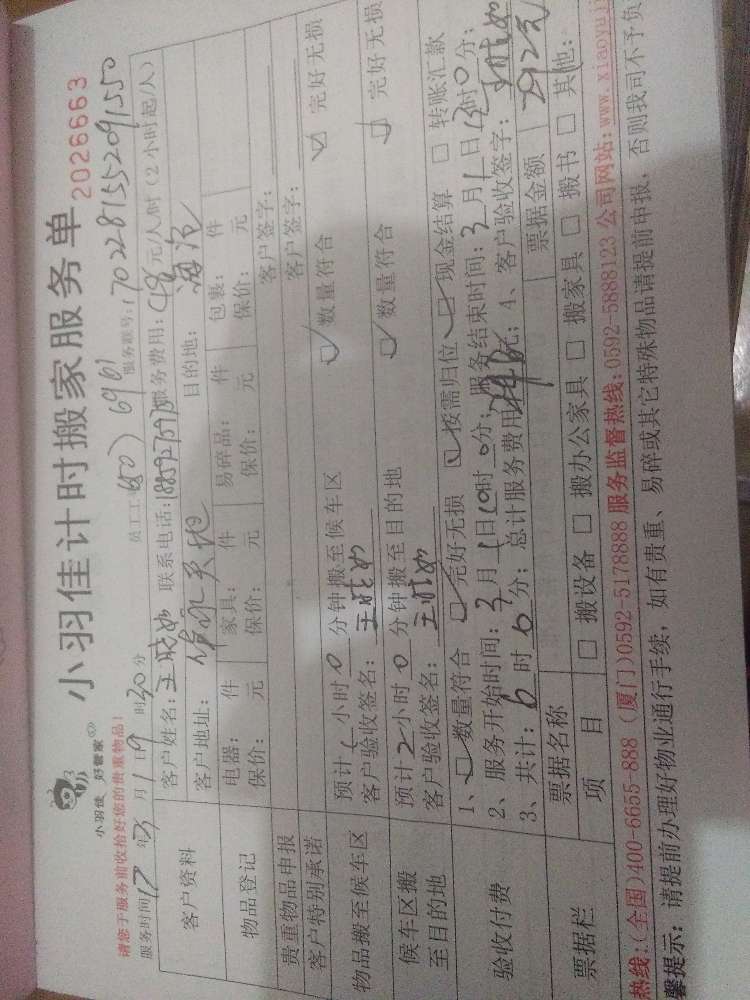 小羽佳 好管家
小羽佳计时搬家服务单
2026663
请您于服务前收拾好您的贵重物品!
服务时间 17年3月1日9时30分 员工工号 6961 服务账号: 1702281552091550
客户资料
客户姓名: 王晓如 联系电话: 服务费用: 48元/人/时 (2小时起/人)
客户地址: 天地 目的地: 海沧
物品登记
电器: 件 家具: 件 易碎品: 件 包裹: 件
保价: 元 保价: 元 保价: 元 保价: 元
贵重物品申报 客户签字:
客户特别承诺 客户签字:
物品搬至候车区
预计1小时0分钟搬至候车区 数量符合 完好无损
客户验收签名: 王晓如
候车区搬至目的地
预计2小时0分钟搬至目的地 数量符合 完好无损
客户验收签名: 王晓如
验收付费
1、数量符合 完好无损 按需归位 现金结算 转账汇款
2、服务开始时间: 3月1日10时0分; 服务结束时间: 3月1日时0分;
3、共计: 6时0分; 总计服务费用元; 4、客户验收签字: 王晓如
票据栏
票据名称 票据金额
项目 搬设备 搬办公家具 搬家具 搬书 其他:
热线:(全国)400-6655-888 (厦门)0592-5178888 服务监督热线:0592-5888123 公司网站:www.xiaoyuji
馨提示: 请提前办理好物业通行手续, 如有贵重、易碎或其它特殊物品请提前申报, 否则我司不予负